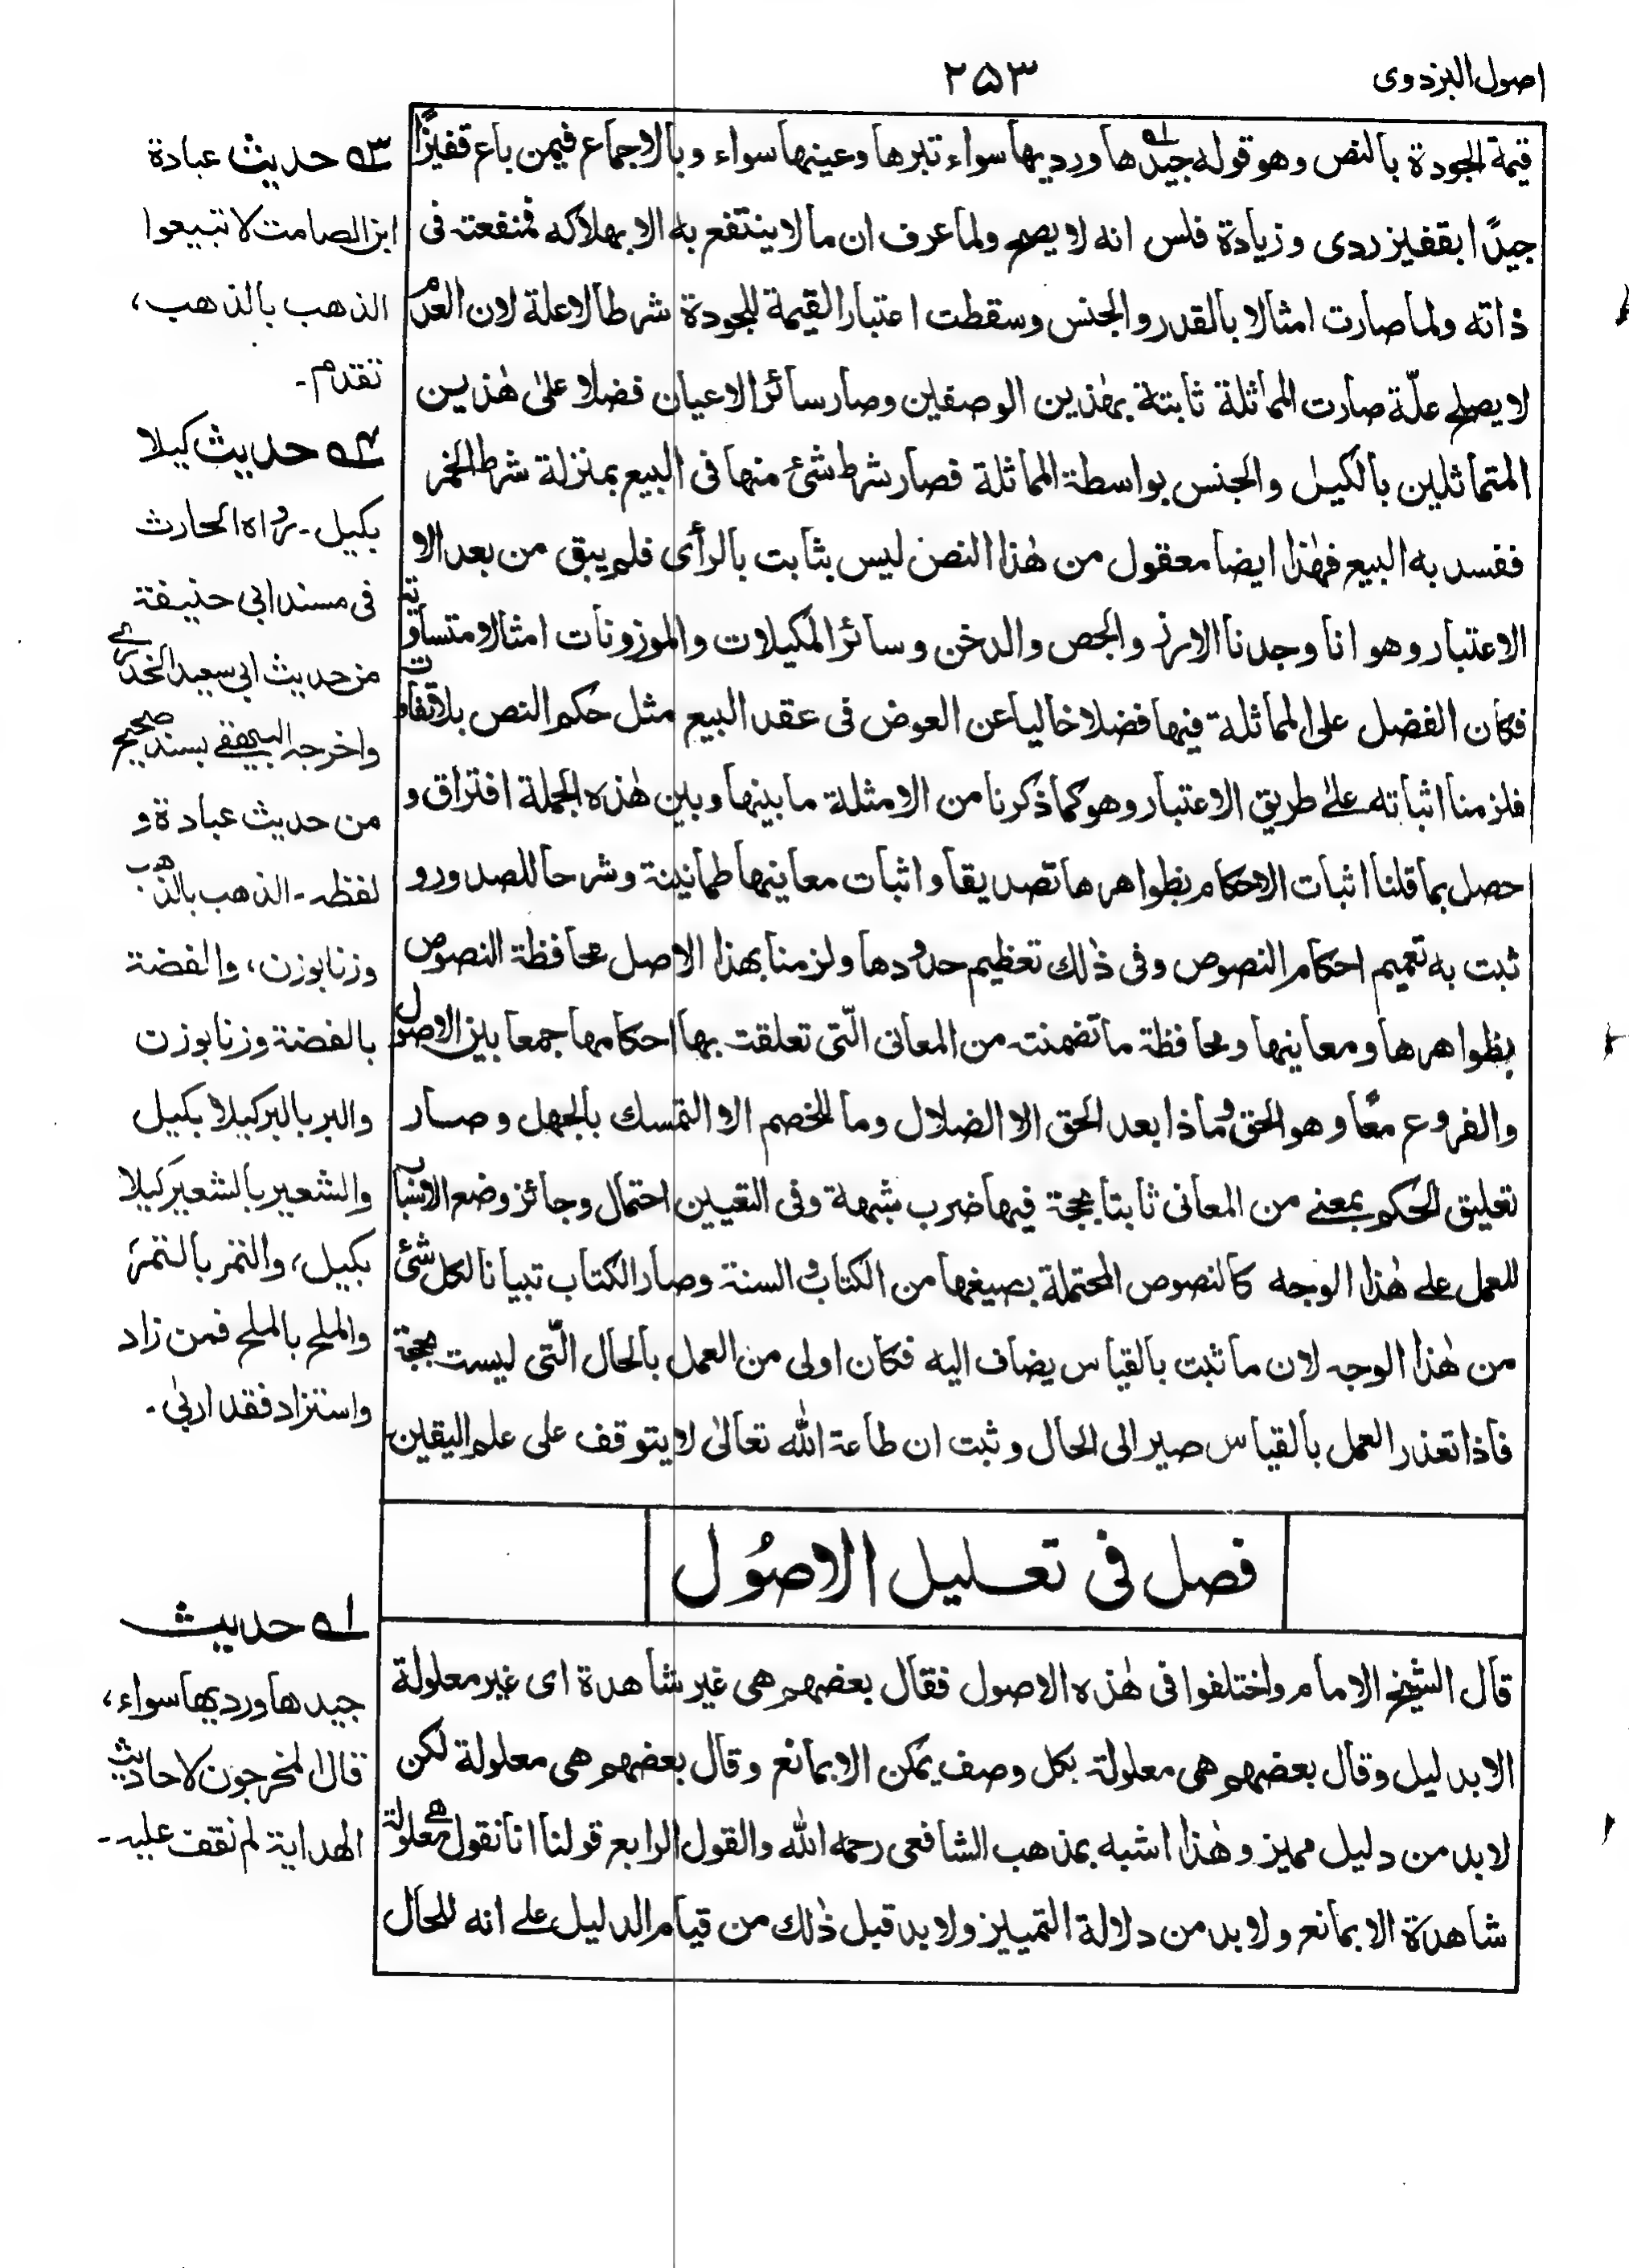 اصول البزدوى
٢٥٣
قيمة الجودة بالنص وهو قوله جيدها ورديها سواء تبرها وعينها سواء وبالاجماع فيمن باع قفيزًا
جيدًا بقفيز ردى وزيادة فلس انه لا يصح ولما عرف ان ما لا ينتفع به الا بهلاكه فمنفعته فى
ذاته ولما صارت امثالا بالقدر والجنس وسقطت اعتبار القيمة للجودة شرطا لا علة لان العدم
لا يصلح علّة صارت المماثلة ثابتة بهٰذين الوصفين وصار سائر الاعيان فضلا علىٰ هٰذين
المتماثلين بالكيل والجنس بواسطة المماثلة فصار شرط شئ منها فى البيع بمنزلة شرط الخمر
ففسد به البيع فهٰذا ايضا معقول من هٰذا النص ليس بثابت بالرأى فلم يبق من بعد الا
الاعتبار وهو انا وجدنا الارز والجص والدخن وسائر المكيلات والموزونات امثالا متساوية
فكان الفضل على المماثلة فيها فضلا خاليا عن العوض فى عقد البيع مثل حكم النص بلا تفاوت
فلزمنا اثباته علىٰ طريق الاعتبار وهو كما ذكرنا من الامثلة ما بينها وبين هٰذه الجملة افتراق و
حصل بما قلنا اثبات الاحكام بظواهرها تصديقا واثبات معانيها طمانينة وشرحا للصدور و
ثبت به تعميم احكام النصوص وفى ذٰلك تعظيم حدودها ولزمنا بهذا الاصل محافظة النصوص
بظواهرها ومعاينها ومحافظة ما تضمنته من المعانى الّتى تعلقت بها احكامها جمعا بين الاصول
والفروع معًا وهو الحق وماذا بعد الحق الا الضلال وما للخصم الا التمسك بالجهل وصار
تعليق الحكم بمعنى من المعانى ثابتا بحجة فيها ضرب شبهة وفى التعيين احتمال وجائز وضع الاسباب
للعمل على هٰذا الوجه كالنصوص المحتملة بصيغها من الكتاب والسنة وصار الكتاب تبيانا لكل شئ
من هٰذا الوجه لان ما ثبت بالقياس يضاف اليه فكان اولى من العمل بالحال الّتى ليست بحجة
فاذا تعذر العمل بالقياس صير الى الحال وثبت ان طاعة الله تعالىٰ لا يتوقف على علم اليقين
فصل فى تعليل الاصُول
قال الشيخ الامام واختلفوا فى هٰذه الاصول فقال بعضهم هى غير شاهدة اى غير معلولة
الا بدليل وقال بعضهم هى معلولة بكل وصف يمكن الا بمانع وقال بعضهم هى معلولة لكن
لا بد من دليل مميز وهٰذا اشبه بمذهب الشافعى رحمه الله والقول الرابع قولنا انا نقول هى معلولة
شاهدة الا بمانع ولا بد من دلالة التمييز ولا بد قبل ذٰلك من قيام الدليل على انه للحال
٣ حديث عبادة
ابن الصامت لا تبيعوا
الذهب بالذهب،
تقدم۔
٤ حديث كيلا
بكيل۔ رواه الحارث
فى مسند ابى حنيفة
من حديث ابى سعيد الخدرى
واخرجه البيهقى بسند صحيح
من حديث عبادة و
لفظه۔ الذهب بالذهب
وزنا بوزن، والفضة
بالفضة وزنا بوزن
والبر بالبر كيلا بكيل
والشعير بالشعير كيلا
بكيل، والتمر بالتمر
والملح بالملح فمن زاد
واستزاد فقد اربىٰ۔
١ حديث
جيدها ورديها سواء،
قال المخرجون لاحاديث
الهداية لم نقف عليه۔